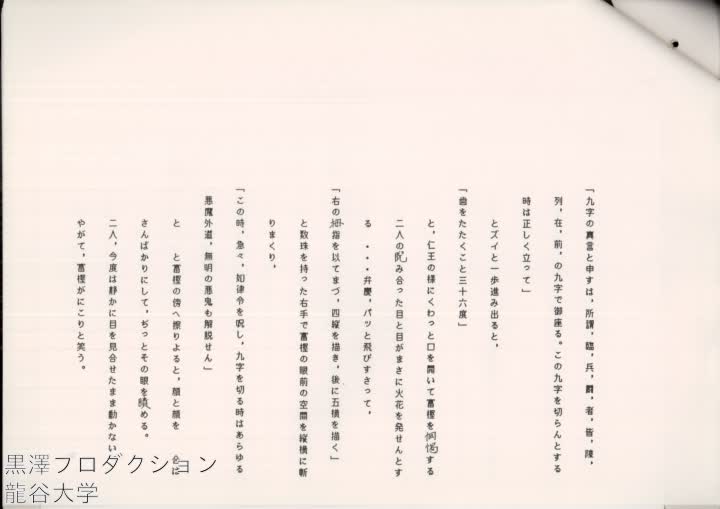 「九字の真言と申すは，所謂，臨，兵，闘，者，皆，陳，
列，在，前，の九字で御座る。この九字を切らんとする
時は正しく立って」
とズイと一歩進み出ると，
「歯をたたくこと三十六度」
と，仁王の様にくわっと口を開いて富樫を恫愒する
二人の睨み合った目と目がまさに火花を発せんとす
る・・・弁慶，パッと飛びすさって，
「右の拇指を以てまづ，四縦を描き，後に五横を描く」
と数珠を持った右手で富樫の眼前の空間を縦横に斬
りまくり，
「この時，急々，如律令を呪し，九字を切る時はあらゆる
悪魔外道，無明の悪鬼も解脱せん」
と と富樫の傍へ擦りよると，顔と顔を
さんばかりにして，ぢっとその眼を める。
二人，今度は静かに目を見合せたまま動かない
やがて，富樫がにこりと笑う。
黒澤プロダクション
龍谷大学